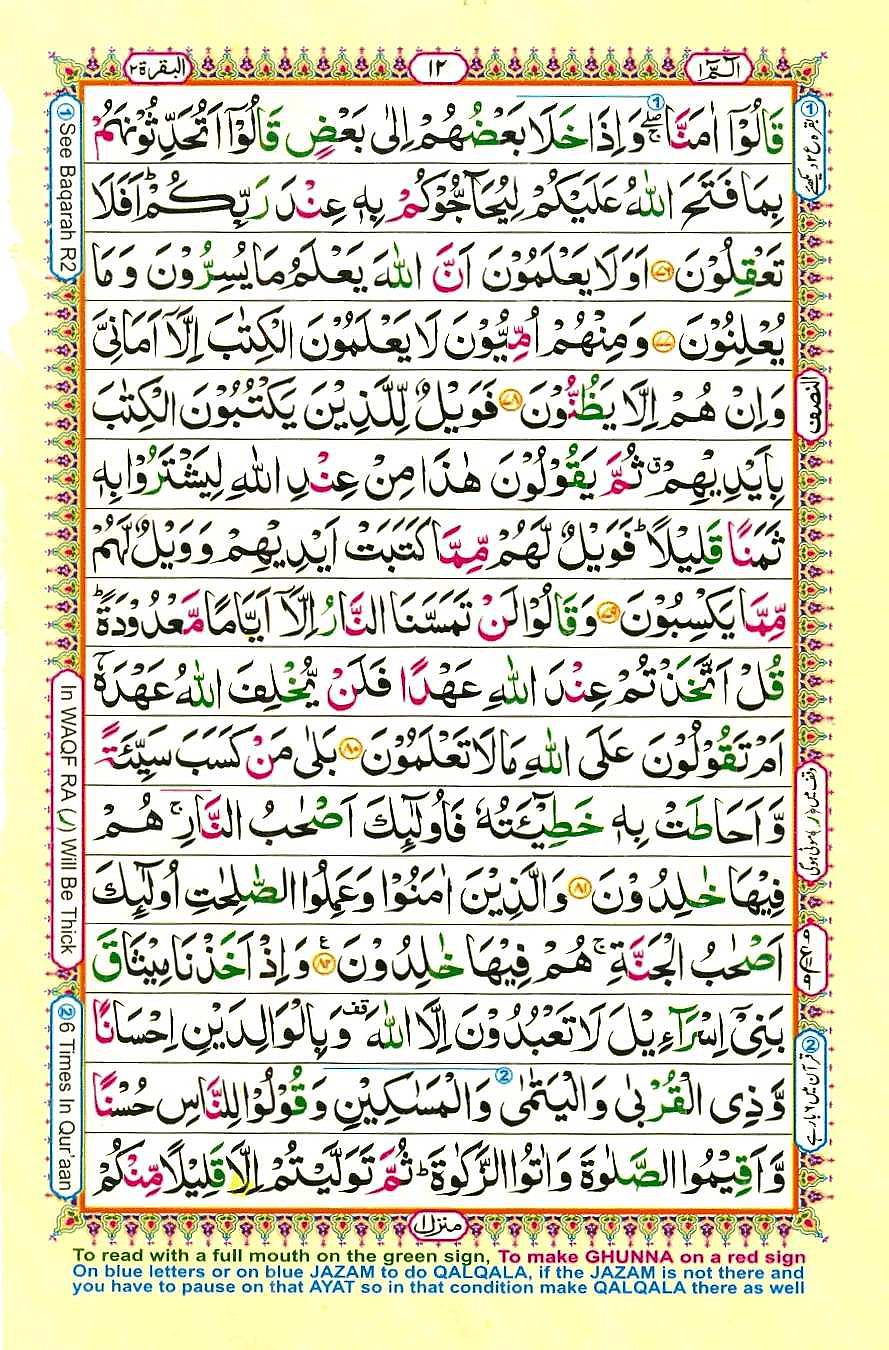 الٓمّٓ ١
١٢
البقرة ٢
قَالُوْۤا اٰمَنَّا ۖۚ وَاِذَا خَلَا بَعْضُهُمْ اِلٰى بَعْضٍ قَالُوْۤا اَتُحَدِّثُوْنَهُمْ
بِمَا فَتَحَ اللّٰهُ عَلَيْكُمْ لِيُحَآجُّوْكُمْ بِهٖ عِنْدَ رَبِّكُمْ ؕ اَفَلَا
تَعْقِلُوْنَ ﴿٧٦﴾ اَوَلَا يَعْلَمُوْنَ اَنَّ اللّٰهَ يَعْلَمُ مَا يُسِرُّوْنَ وَمَا
يُعْلِنُوْنَ ﴿٧٧﴾ وَمِنْهُمْ اُمِّيُّوْنَ لَا يَعْلَمُوْنَ الْكِتٰبَ اِلَّاۤ اَمَانِيَّ
وَاِنْ هُمْ اِلَّا يَظُنُّوْنَ ﴿٧٨﴾ فَوَيْلٌ لِّلَّذِيْنَ يَكْتُبُوْنَ الْكِتٰبَ
بِاَيْدِيْهِمْ ۗ ثُمَّ يَقُوْلُوْنَ هٰذَا مِنْ عِنْدِ اللّٰهِ لِيَشْتَرُوْا بِهٖ
ثَمَنًا قَلِيْلًا ؕ فَوَيْلٌ لَّهُمْ مِّمَّا كَتَبَتْ اَيْدِيْهِمْ وَوَيْلٌ لَّهُمْ
مِّمَّا يَكْسِبُوْنَ ﴿٧٩﴾ وَقَالُوْا لَنْ تَمَسَّنَا النَّارُ اِلَّاۤ اَيَّامًا مَّعْدُوْدَةً ؕ
قُلْ اَتَّخَذْتُمْ عِنْدَ اللّٰهِ عَهْدًا فَلَنْ يُّخْلِفَ اللّٰهُ عَهْدَهٗۤ
اَمْ تَقُوْلُوْنَ عَلَى اللّٰهِ مَا لَا تَعْلَمُوْنَ ﴿٨٠﴾ بَلٰى مَنْ كَسَبَ سَيِّئَةً
وَّاَحَاطَتْ بِهٖ خَطِيْٓئَتُهٗ فَاُولٰٓئِكَ اَصْحٰبُ النَّارِ ۚ هُمْ
فِيْهَا خٰلِدُوْنَ ﴿٨١﴾ وَالَّذِيْنَ اٰمَنُوْا وَعَمِلُوا الصّٰلِحٰتِ اُولٰٓئِكَ
اَصْحٰبُ الْجَنَّةِ ۚ هُمْ فِيْهَا خٰلِدُوْنَ ﴿٨٢﴾ ع وَاِذْ اَخَذْنَا مِيْثَاقَ
بَنِيْۤ اِسْرَآءِيْلَ لَا تَعْبُدُوْنَ اِلَّا اللّٰهَ قف وَبِالْوَالِدَيْنِ اِحْسَانًا
وَّذِى الْقُرْبٰى وَالْيَتٰمٰى وَالْمَسٰكِيْنِ وَقُوْلُوْا لِلنَّاسِ حُسْنًا
وَّاَقِيْمُوا الصَّلٰوةَ وَاٰتُوا الزَّكٰوةَ ؕ ثُمَّ تَوَلَّيْتُمْ اِلَّا قَلِيْلًا مِّنْكُمْ
النصف
منزل ١
① See Baqarah R2
In WAQF RA (ر) Will Be Thick
② 6 Times In Qur'aan
To read with a full mouth on the green sign, To make GHUNNA on a red sign
On blue letters or on blue JAZAM to do QALQALA, if the JAZAM is not there and
you have to pause on that AYAT so in that condition make QALQALA there as well